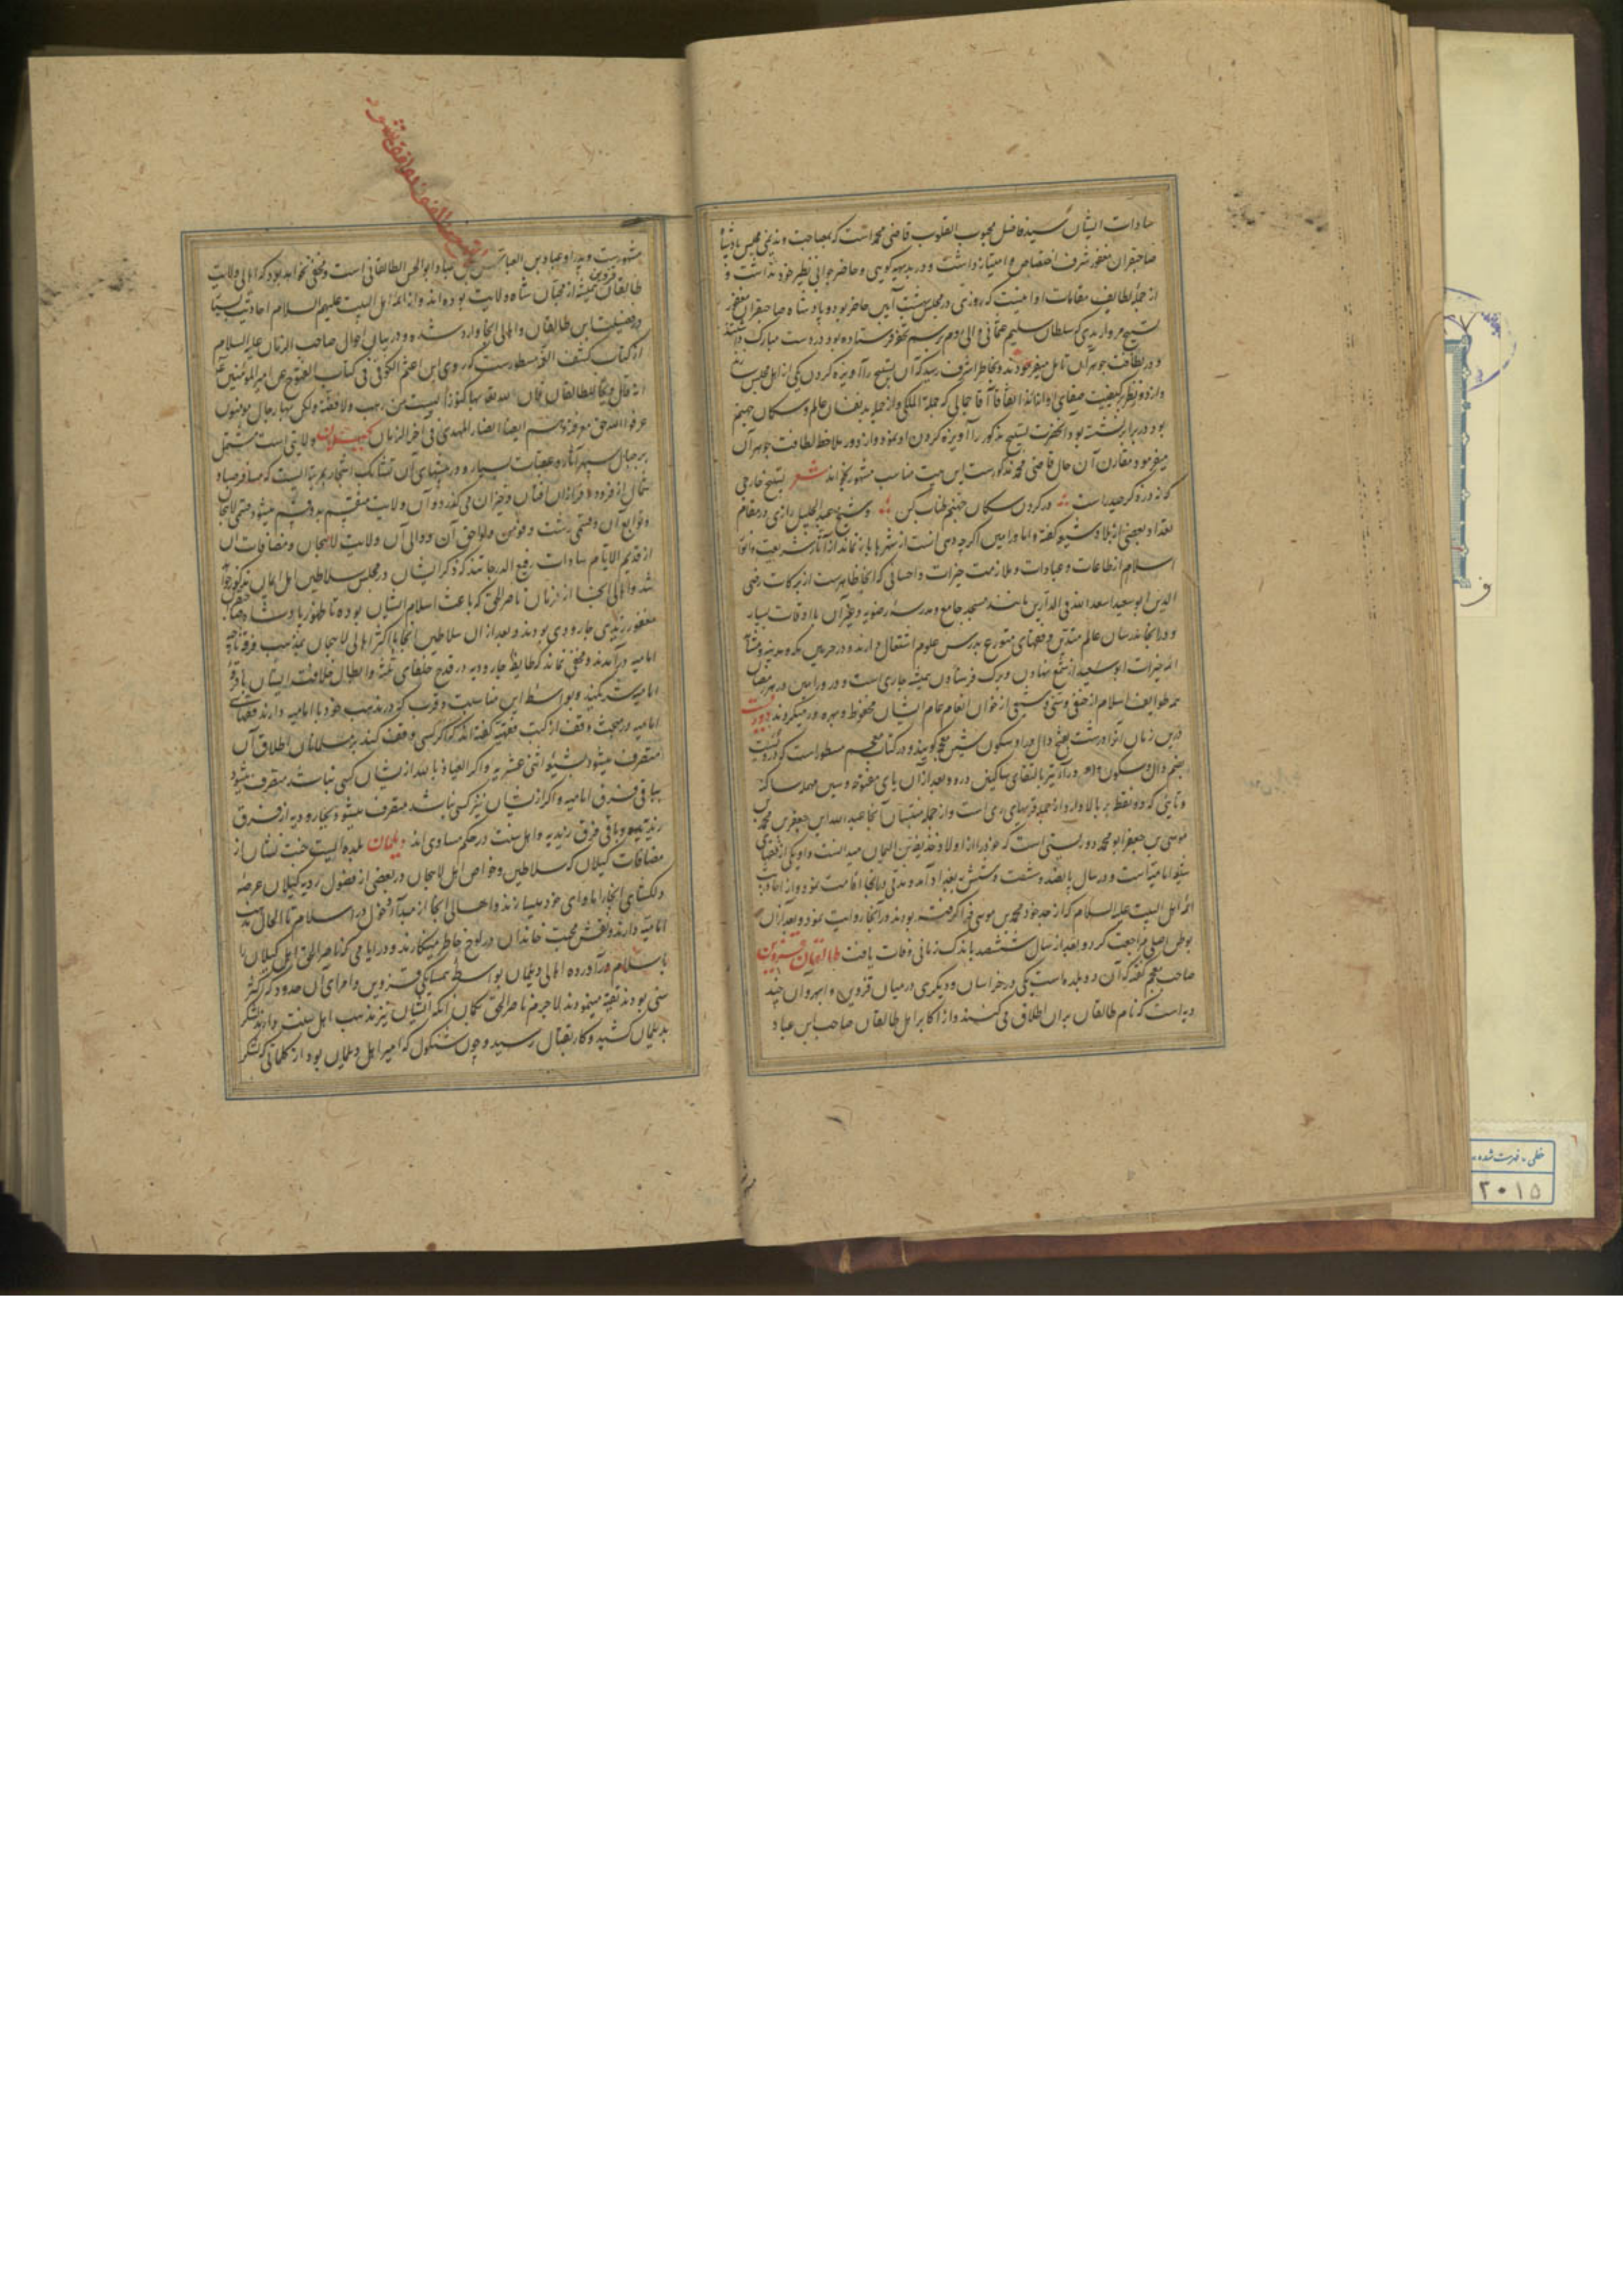 سادات ایشان سید فاضل محبوب القلوب قاضی محمد است که بمصاحبت و ندیمی مجلس پادشاه
صاحبقران مغفور شرف اختصاص و امتیاز داشت و در بدیهه گویی و حاضر جوابی نظیر خود نداشت و
از جمله لطایف مقامات او اینست که روزی در مجلس بهشت آیین حاضر بود و پادشاه صاحبقران مغفور
تسبیح مرواریدی که سلطان سلیم عثمانی والی روم برسم تحفه فرستاده بود در دست مبارک داشتند
و در لطافت جوهر آن تامل میفرمودند و بخاطر اشرف رسید که آن تسبیح را آویزه گردن یکی از اهل مجلس سازند
بود در برابر نشسته بود آنحضرت تسبیح مذکور را آویزه گردن او نمود و از دور ملاحظه لطافت جوهر آن
میفرمود مقارن آن حال قاضی محمد مذکور است این بیت مناسب مشهور بخواند شعر تسبیح خارجی
که نه در ذکر حیدر است در گردن سکان جهنم طناب کن و شیخ عبد الجلیل رازی در مقام
تعداد بعضی از بلاد شیعه گفته و اما ورامین اگرچه دهی است از شهرها باز نماند از آثار شریعت و انوار
اسلام از طاعات و عبادات و ملازمت خیرات و احسانی که آنجا ظاهرست از برکات رضی
الدین ابو سعید اسعد الله فی الدارین بانشاء مسجد جامع و مدرسه رضویه و غیر آن با اوقات بسیار
و در آنجا مدرسان عالم متدین و فقهای متورع بدرس علوم اشتغال دارند و در حرمین مکه و مدینه و مشاهد
ائمه خیرات ابو سعید از شمع نهادن و برک فرستادن همیشه جاری است و در ورامین در هر رمضان
همه طوایف اسلام از حنفی و سنی و شیعی از خوان انعام عام ایشان محظوظ و بهره ور میگردند دوریست
درین زمان آنرا درشت بفتح دال و را و سکون شین معجم گویند و در کتاب معجم مسطور است که دوریست
بضم دال و سکون واو و راء نیز بالتقای ساکنین درو و بعد از آن یای مفتوحه و سین مهمله ساکنه
و تایی که دو نقطه بر بالا دارد از جمله قریهای ری است و از جمله منتسبان آنجا عبد الله ابن جعفر بن محمد بن
موسی بن جعفر ابو محمد دوریستی است که خود را از اولاد حذیفه بن الیمان میدانست و او یکی از فقهای
شیعه امامیه است و در سال پانصد و شصت و شش ببغداد آمد و مدتی در آنجا اقامت نمود و از احادیث
ائمه اهل البیت علیه السلام که از جد خود محمد بن موسی فرا گرفته بودند در آنجا روایت نمود و بعد از آن
بوطن اصلی مراجعت کرد و بعد از سال ششصد باندک زمانی وفات یافت طالقان قزوین
صاحب معجم گفته که آن دو بلده است یکی در خراسان و دیگری در میان قزوین و ابهر و آن چند
دیه است که نام طالقان بر آن اطلاق می کنند و از اکابر اهل طالقان صاحب ابن عباد
مشهورست و پدر او عباد بن العباس بن عباد ابو الحسن الطالقانی است و مخفی نخواهد بود که اهالی ولایت
طالقان قزوین همیشه از محبان شاه ولایت بوده اند و از ائمه اهل البیت علیهم السلام احادیث بسیار
در فضیلت این طالقان و اهالی آنجا وارد شده و در بیان احوال صاحب الزمان علیه السلام
از کتاب کشف الغمه مسطورست که روی ابن اعثم الکوفی فی کتاب الفتوح عن امیر المؤمنین ع
انه قال ویحا للطالقان فان لله تعالی بها کنوزا لیست من ذهب ولا فضة ولکن بها رجال مومنون
عرفوا الله حق معرفته وهم ایضا انصار المهدی فی آخر الزمان گیلان ولایتی است مشتمل
بر جبال سپهر آثار و عقبات بسیار و در بیشهای آن تشابک اشجار بمرتبه ایست که مسافر صبا و
شمال از فرود و فراز آن افتان و خیزان می گذرد و آن ولایت منقسم بدو قسم میشود قسمی لاهیجان
و توابع آن و قسمی رشت و فومن و لواحق آن و والی آن ولایت لاهیجان و مضافات آن
از قدیم الایام سادات رفیع الدرجاتند که ذکر ایشان در مجلس سلاطین اهل ایمان مذکور خواهد
شد و اهالی آنجا از زمان ناصر الحق که باعث اسلام ایشان بوده تا ظهور پادشاه صاحبقران
مغفور زیدی جارودی بودند و بعد از آن سلاطین آنجا با اکثر اهالی لاهیجان بمذهب فرقه ناجیه
امامیه درآمدند و مخفی نماند که طایفه جارودیه در قدح خلفای ثلثه و ابطال خلافت ایشان با فرقه
امامیه شریکند و بواسطه این مناسبت و قرب که در مذهب خود با امامیه دارند فقهای
امامیه در مبحث وقف از کتب فقهیه گفته اند که اگر کسی وقف کند بر مسلمانان اطلاق آن
منصرف میشود بشیعه اثنی عشریه و اگر العیاذ بالله از ایشان کسی نباشد منصرف میشود
بباقی فرق امامیه و اگر از ایشان نیز کسی نباشد منصرف میشود بجارودیه از فرق
زیدیه و باقی فرق زیدیه و اهل سنت در حکم مساوی اند دیلمان بلده ایست جنت نشان از
مضافات گیلان که سلاطین و خواص اهل لاهجان در بعضی از فصول رو بگیلان عرصه
دلگشای آنجا را مأوای خود میسازند و اهالی آنجا از مبدأ دخول در اسلام تا الحال مذهب
امامیه دارند و نقش محبت خاندان در لوح خاطر مینگارند و در ایامی که ناصر الحق اهل گیلان را
باسلام درآورده اهالی دیلمان بواسطه همسایگی قزوین و امرای آن حدود که اکثر
سنی بودند تقیه مینمودند لاجرم ناصر الحق بگمان آنکه ایشان نیز مذهب اهل سنت دارند لشکر
بدیلمان کشید و کار بقتال رسید و چون شنکول که امیر اهل دیلمان بود از کلماتی که لشکر
خطی ـ فهرست شده
۲۰۱۵